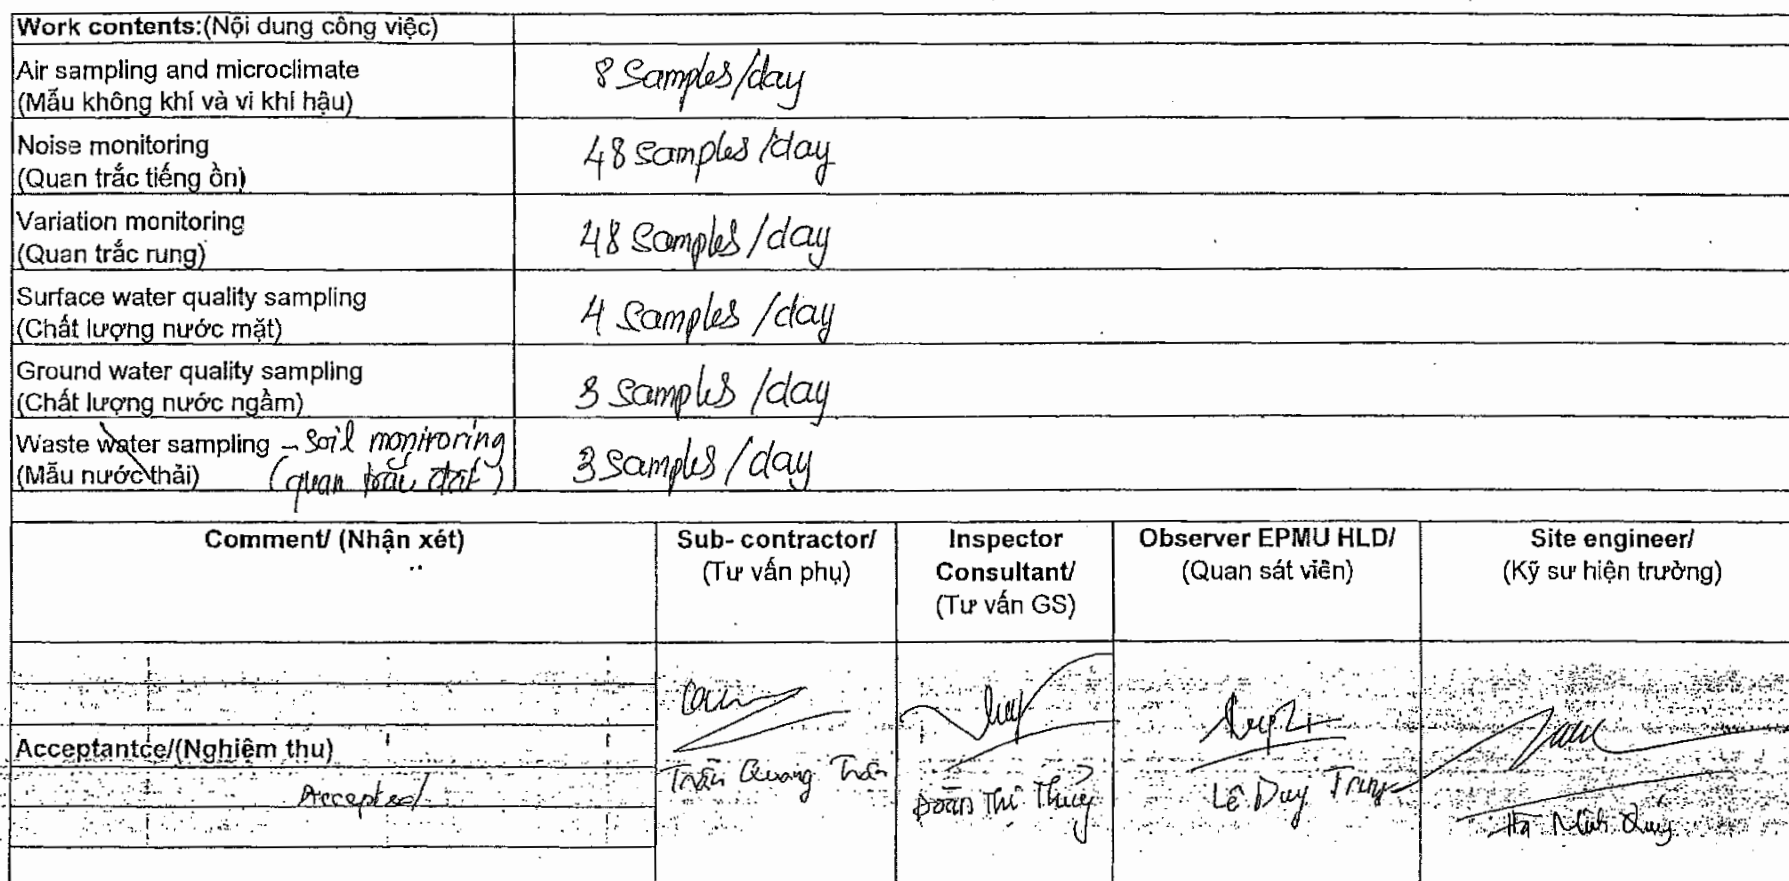 Work contents:(Nội dung công việc)
Air sampling and microclimate
(Mẫu không khí và vi khí hậu)
8 Samples/day
Noise monitoring
(Quan trắc tiếng ồn)
48 samples /day
Variation monitoring
(Quan trắc rung)
48 samples /day
Surface water quality sampling
(Chất lượng nước mặt)
4 samples /day
Ground water quality sampling
(Chất lượng nước ngầm)
3 samples /day
Waste water sampling - Soil moniroring
(Mẫu nước thải) (quan trắc đất)
3 samples / day
Comment/ (Nhận xét)
Sub- contractor/
(Tư vấn phụ)
Inspector
Consultant/
(Tư vấn GS)
Observer EPMU HLD/
(Quan sát viên)
Site engineer/
(Kỹ sư hiện trường)
Acceptantce/(Nghiệm thu)
Accepted
Trần Quang
Đoàn Thị Thuỷ
Lê Duy Trung